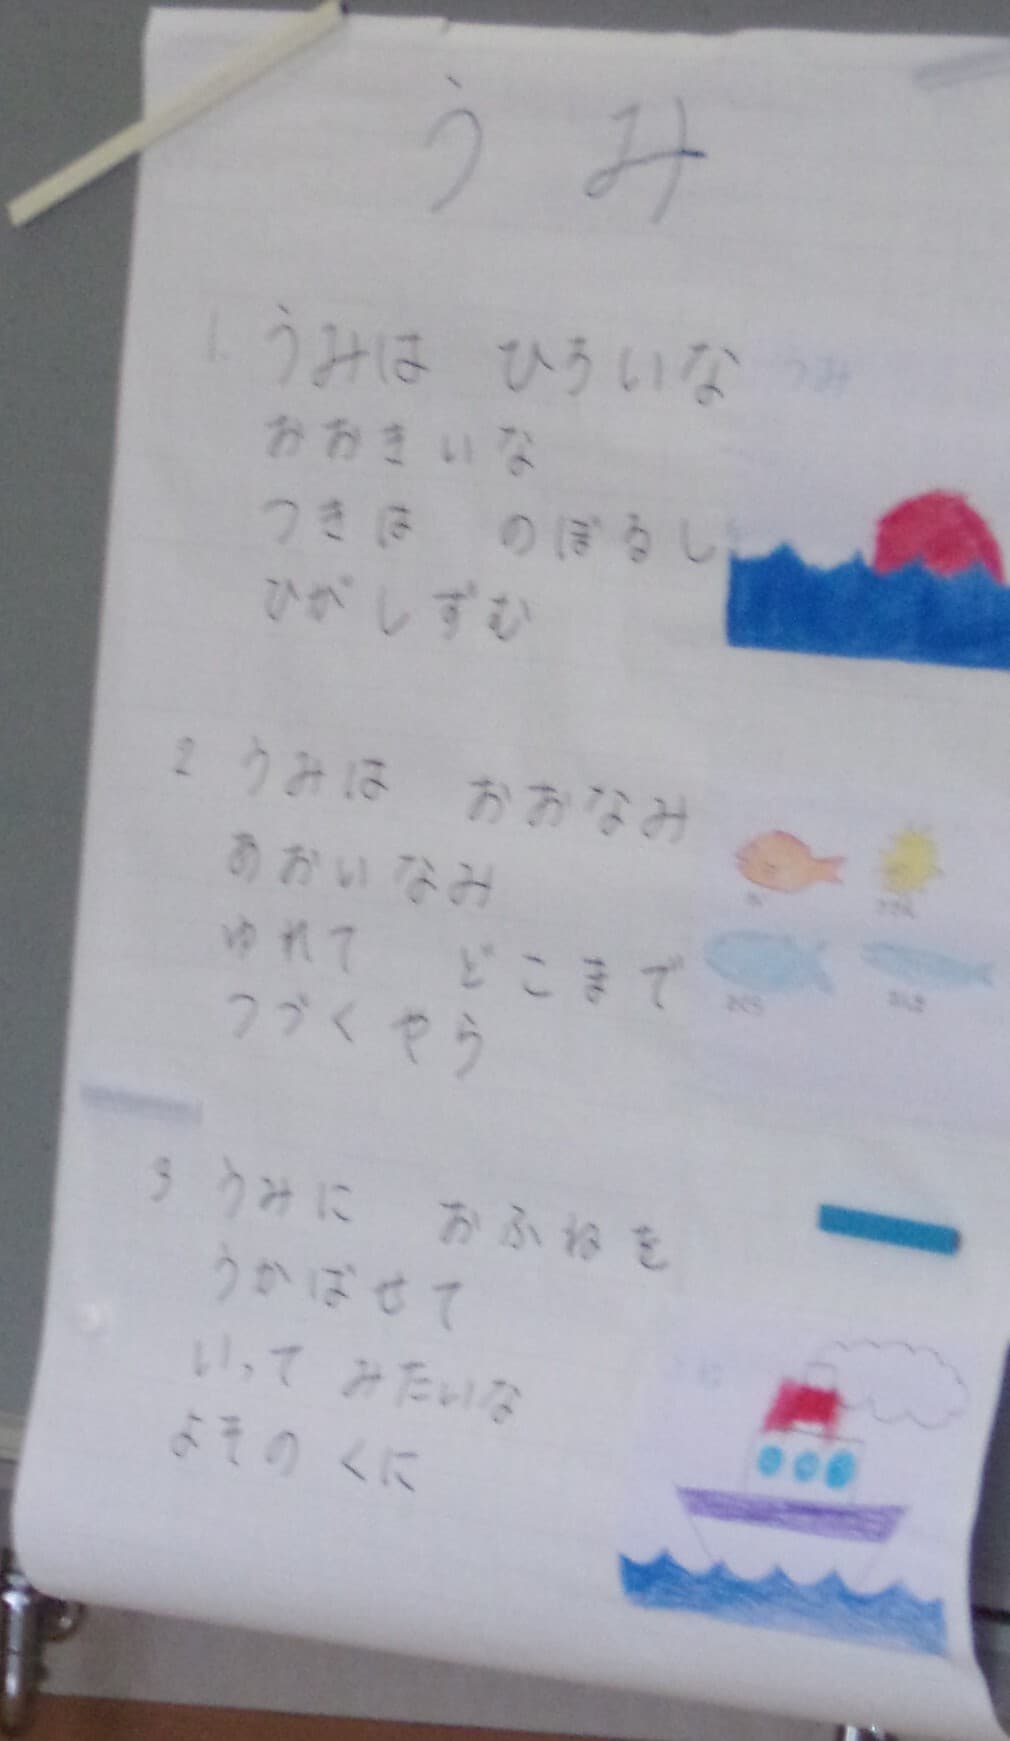 うみ
1. うみは ひろいな
おおきいな
つきは のぼるし
ひがしずむ
うみ
2 うみは おおなみ
あおいなみ
ゆれて どこまで
つづくやら
3 うみに おふねを
うかばせて
いって みたいな
よその くに